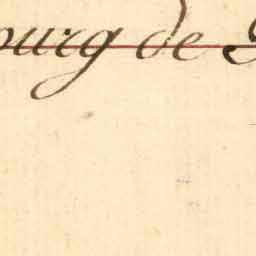 ourg de